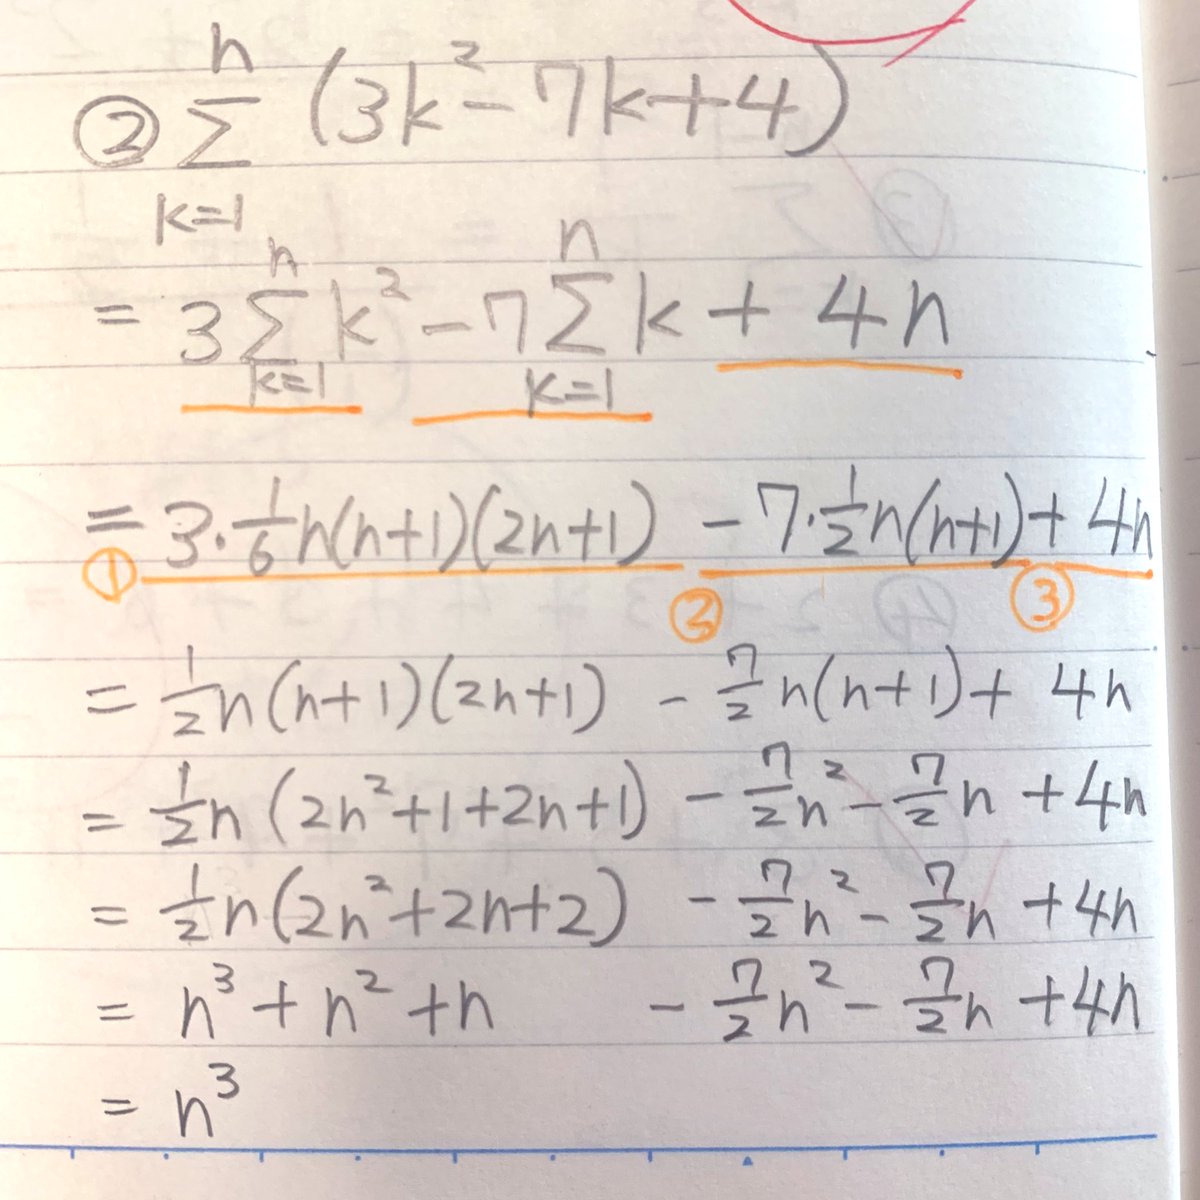 ② Σ[k=1, n] (3k² - 7k + 4)
= 3 Σ[k=1, n] k² - 7 Σ[k=1, n] k + 4n
= 3·1/6 n(n+1)(2n+1) - 7·1/2 n(n+1) + 4n
① ② ③
= 1/2 n(n+1)(2n+1) - 7/2 n(n+1) + 4n
= 1/2 n (2n²+1+2n+1) - 7/2 n² - 7/2 n + 4n
= 1/2 n (2n²+2n+2) - 7/2 n² - 7/2 n + 4n
= n³ + n² + n - 7/2 n² - 7/2 n + 4n
= n³